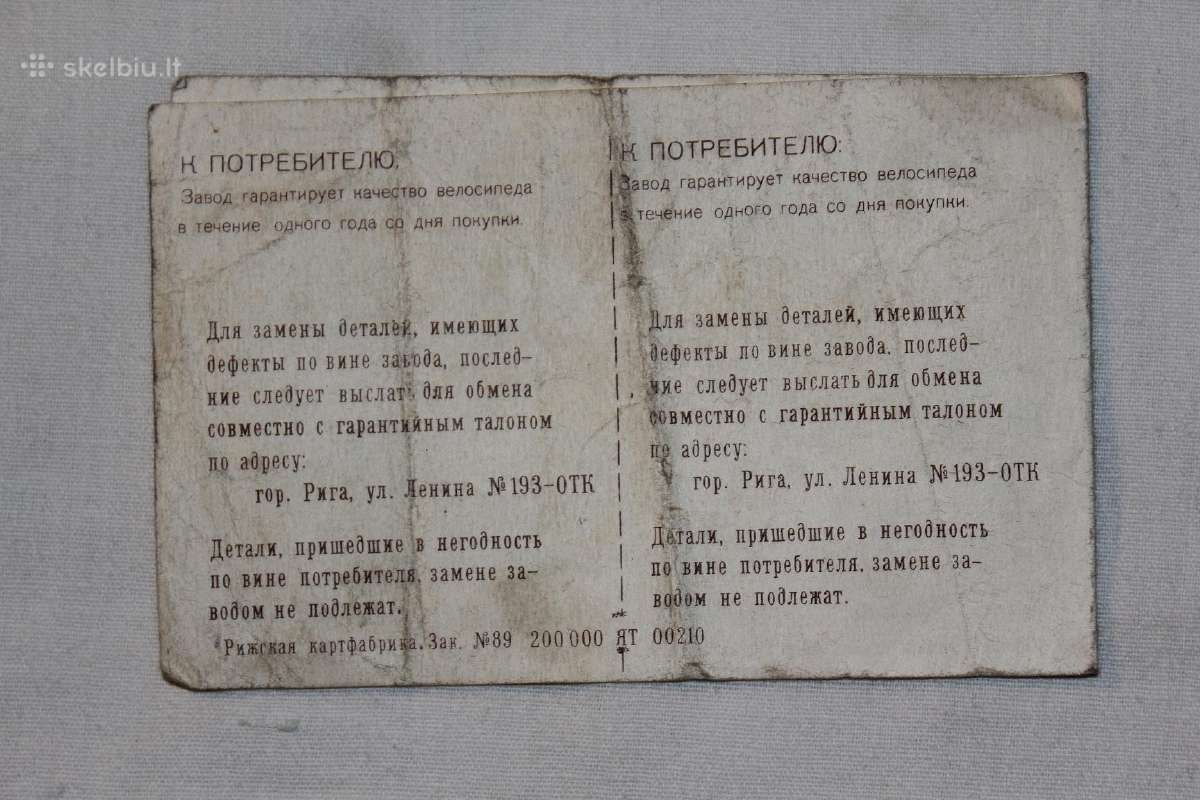 skelbiu.lt
К ПОТРЕБИТЕЛЮ:
Завод гарантирует качество велосипеда
в течение одного года со дня покупки.
Для замены деталей, имеющих
дефекты по вине завода, послед-
ние следует выслать для обмена
совместно с гарантийным талоном
по адресу:
гор. Рига, ул. Ленина №193-ОТК
Детали, пришедшие в негодность
по вине потребителя, замене за-
водом не подлежат.
К ПОТРЕБИТЕЛЮ:
Завод гарантирует качество велосипеда
в течение одного года со дня покупки.
Для замены деталей, имеющих
дефекты по вине завода, послед-
ние следует выслать для обмена
совместно с гарантийным талоном
по адресу:
гор. Рига, ул. Ленина №193-ОТК
Детали, пришедшие в негодность
по вине потребителя, замене за-
водом не подлежат.
Рижская картфабрика. Зак. №89 200 000 ЯТ 00210